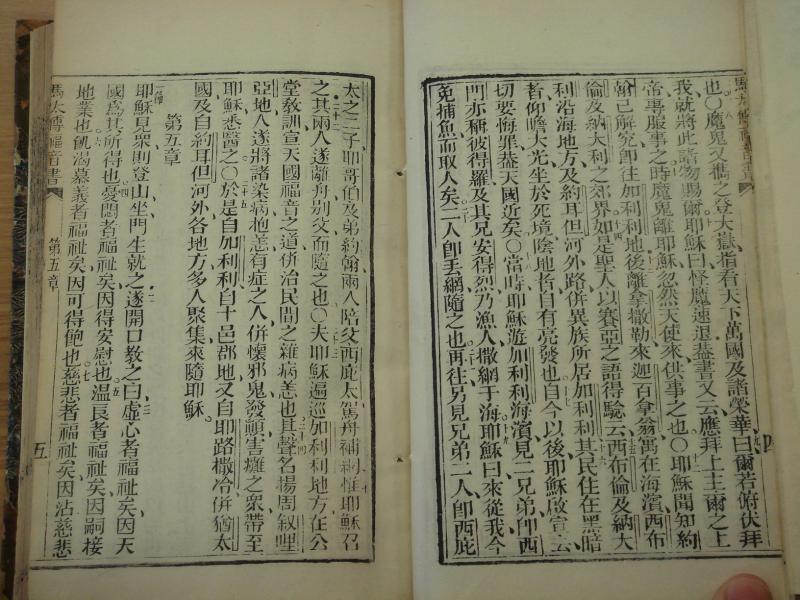 也〇魔鬼又攜之登大嶽指看天下萬國及諸榮華曰爾若俯伏拜
我就將此諸物賜爾耶穌曰怪魔速退蓋書又云應拜上主爾之上
帝專服事之時魔鬼離耶穌忽然天使來供事之也〇耶穌聞知約
翰已解究卽往加利利地後離拿撒勒來迦百拿翁寓在海濱西布
倫及納大利之郊界如是聖人以賽亞之語得驗云西布倫及納大
利沿海地方及約耳但河外路併異族所居加利利其民住在黑暗
者仰瞻大光坐於死境陰地者自有亮發也自今以後耶穌啟宣云
切要悔罪蓋天國近矣〇當時耶穌遊加利利海濱見二兄弟卽西
門亦稱彼得羅及其兄安得烈乃漁人撒網于海耶穌曰來從我今
免捕魚而取人矣二人卽丟網隨之也再往另見兄弟二人卽西庇
四
太之二子耶哥伯及弟約翰兩人陪父西庇太駕舟補網惟耶穌召
之其兩人遂離舟別父而隨之也〇夫耶穌遍巡加利利地方在公
堂教訓宣天國福音之道併治民間之雜病恙也其聲名揚周叙哩
亞地人遂將諸染病抱恙有症之人併懷邪鬼發頓害癱之衆帶至
耶穌悉醫之〇於是自加利利自十邑郡地又自耶路撒冷併猶太
國及自約耳但河外各地方多人聚集來隨耶穌
第五章
耶穌見眾則登山坐門生就之遂開口教之曰虛心者福祉矣因天
國為其所得也憂悶者福祉矣因得安慰也温良者福祉矣因嗣接
地業也飢渴慕義者福祉矣因可得飽也慈悲者福祉矣因沾慈悲
馬太傳福音書
第五章
五